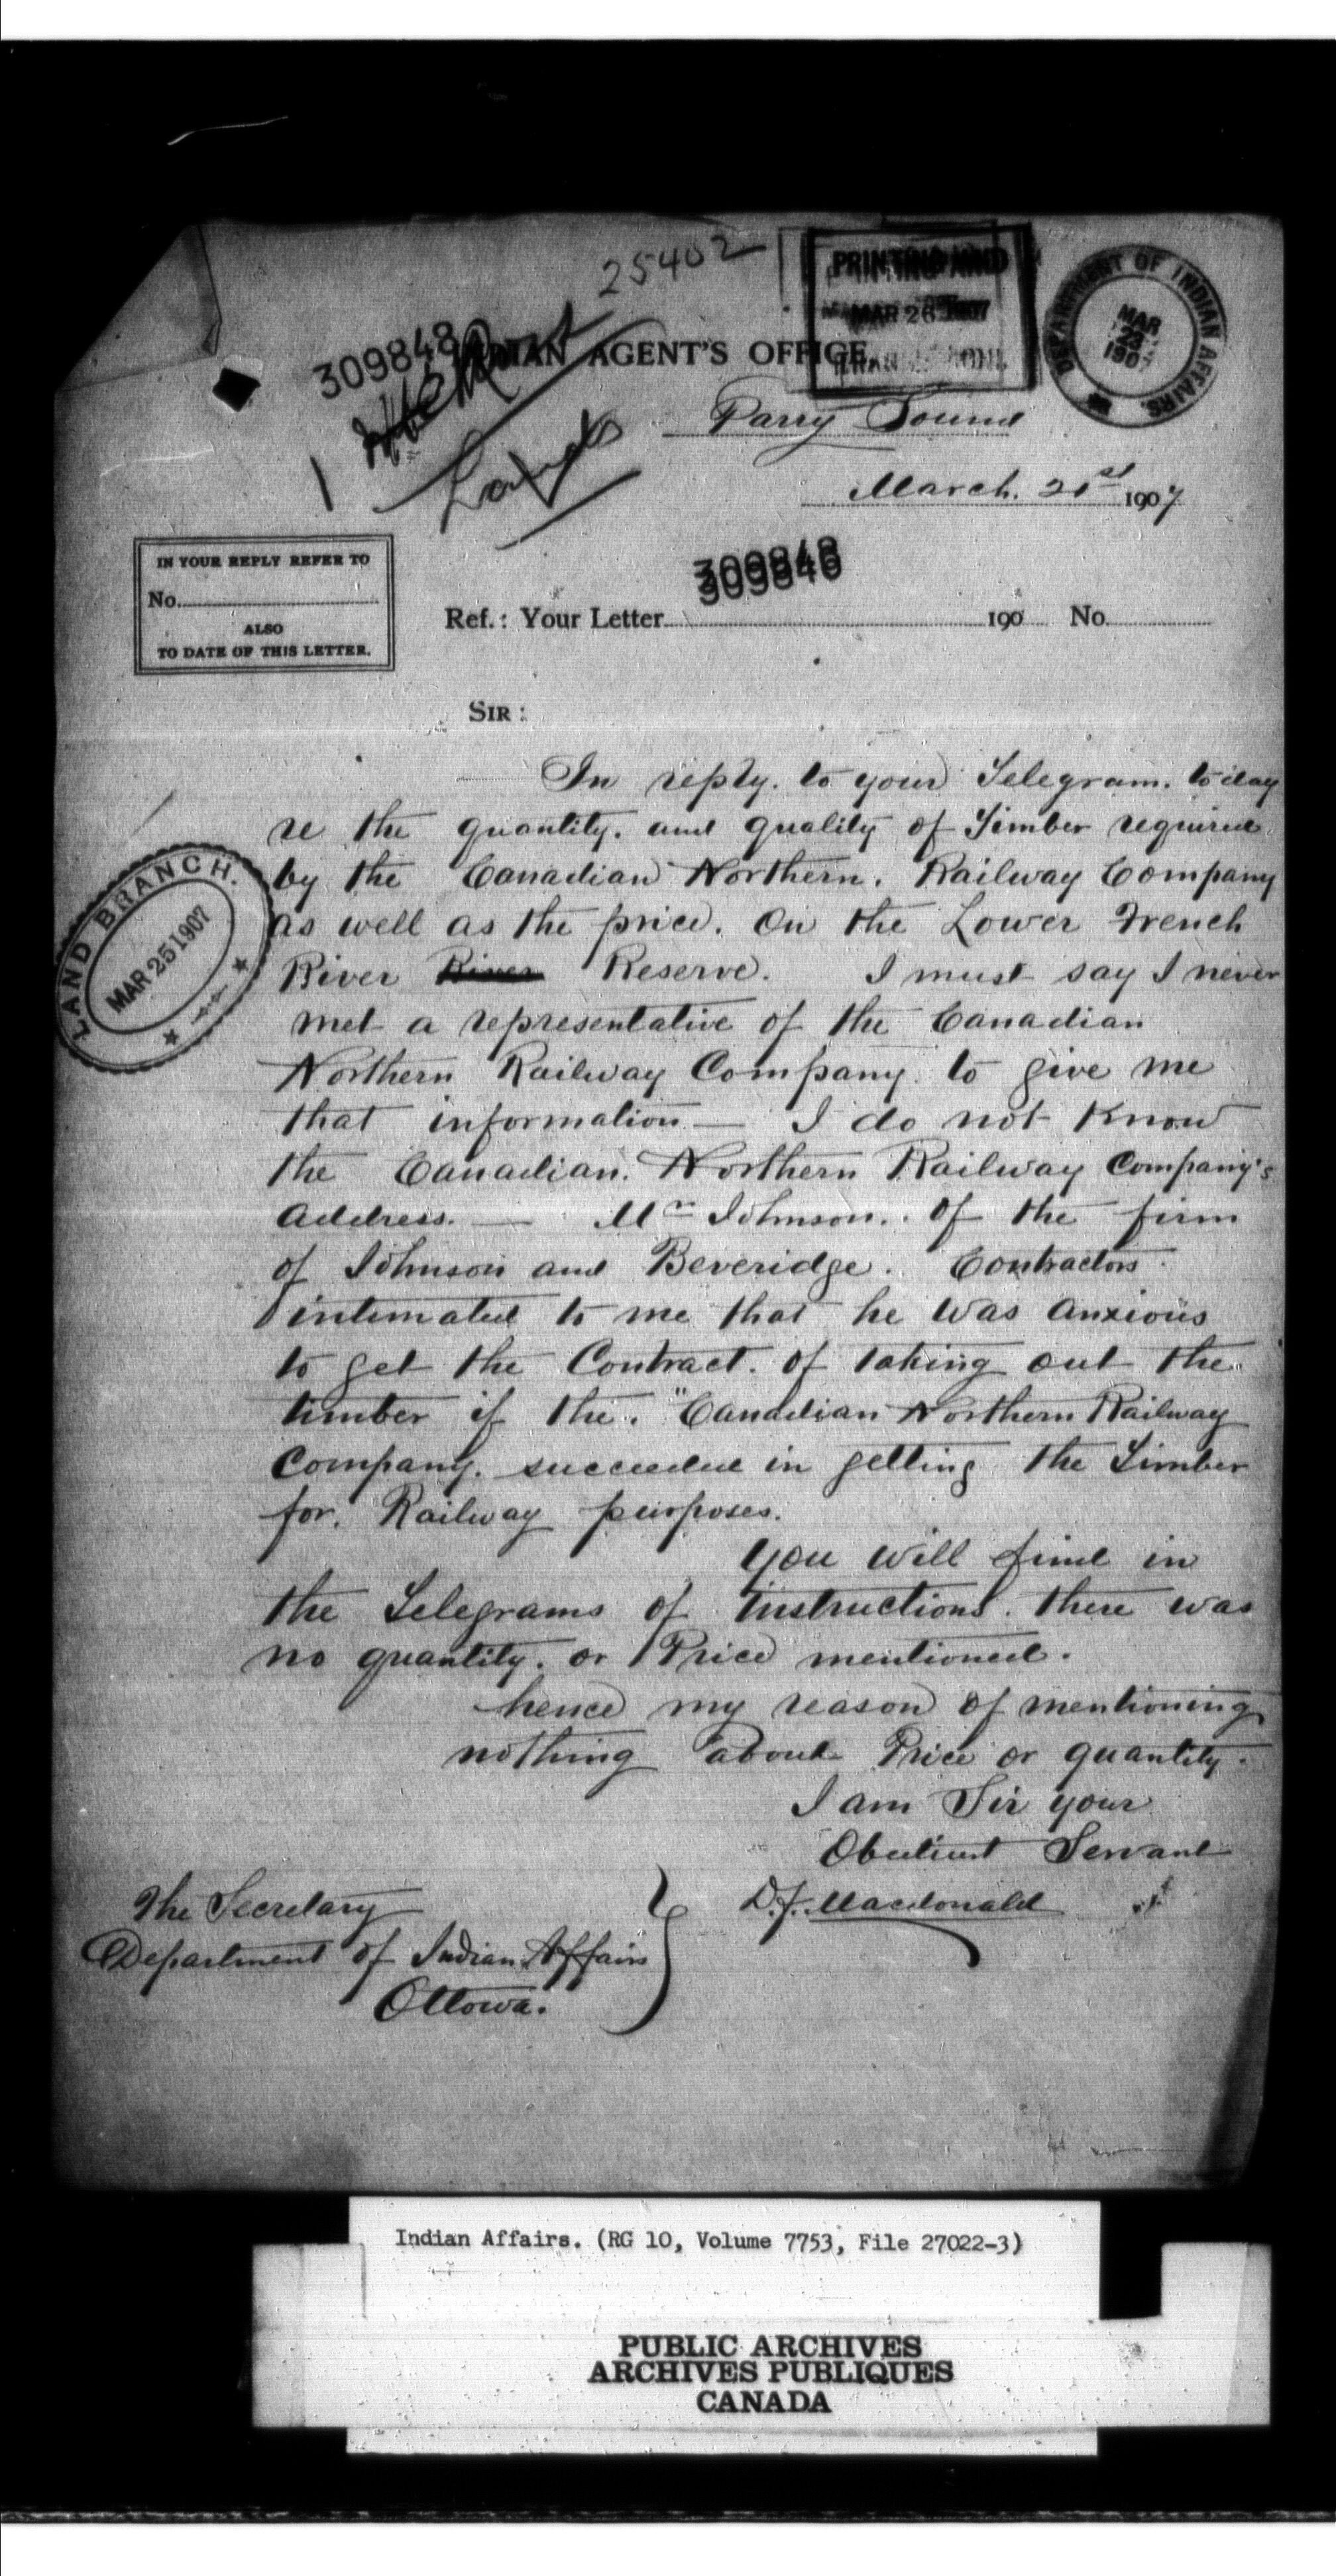 25402
PRINTING AND
MAR 26 1907
309848
INDIAN AGENT'S OFFICE,
DEPARTMENT OF INDIAN AFFAIRS
MAR
23
1907
Lands
Parry Sound
March. 21st 1907
IN YOUR REPLY REFER TO
No.
ALSO
TO DATE OF THIS LETTER.
309848
Ref.: Your Letter 190 No.
SIR:
In reply. to your Telegram. to day
re the quantity. and quality of Timber required
by the Canadian Northern. Railway Company
as well as the price. On the Lower French
River River Reserve. I must say I never
met a representative of the Canadian
Northern Railway Company. to give me
that information — I do not Know
the Canadian. Northern Railway Company's
address. — Mr Johnson. of the firm
of Johnson and Beveridge. Contractors
intimated to me that he was anxious
to get the Contract. of taking out the
timber if the. "Canadian Northern Railway
Company. succeeded in getting the Timber
for. Railway purposes.
You will find in
the Telegrams of instructions. there was
no quantity. or Price mentioned.
hence my reason of mentioning
nothing about Price or quantity.
I am Sir your
Obedient Servant
D.F. Macdonald
The Secretary
Department of Indian Affairs
Ottowa.
LAND BRANCH.
MAR 25 1907
Indian Affairs. (RG 10, Volume 7753, File 27022-3)
PUBLIC ARCHIVES
ARCHIVES PUBLIQUES
CANADA